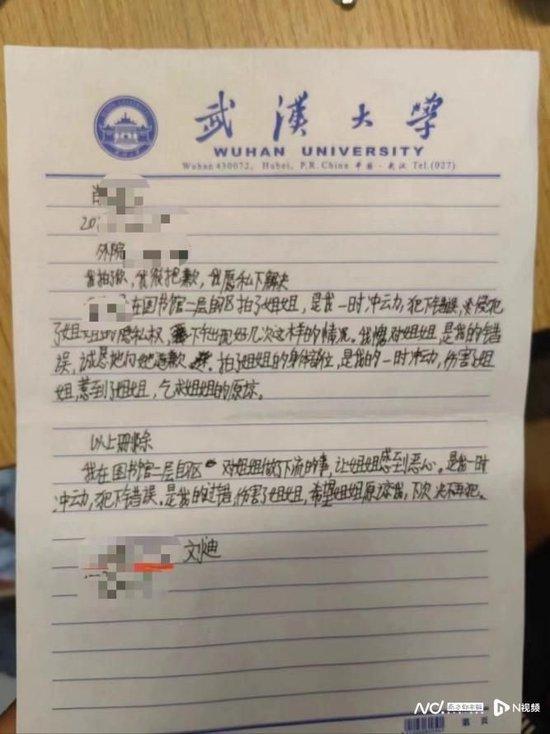 武漢大學
WUHAN UNIVERSITY
Wuhan 430072, Hubei, P.R. China 中国·武汉 Tel.(027)
20
外院
我拍了你，我很抱歉，我愿私下解决
在图书馆二层自区拍了姐姐，是我一时冲动，犯下错误，侵犯
了姐姐的隐私权，下午出现好几次这样的情况。我对姐姐，是我的错
误，诚恳地向她道歉 拍了姐姐的身体部位，是我的一时冲动，伤害了姐
姐，惹到了姐姐，乞求姐姐的原谅。
以上删除
我在图书馆二层自区 对姐姐做了下流的事，让姐姐感到恶心。是我一时
冲动，犯下错误。是我的过错，伤害了姐姐，希望姐姐原谅我，下次决不再犯。
第 页
N视频